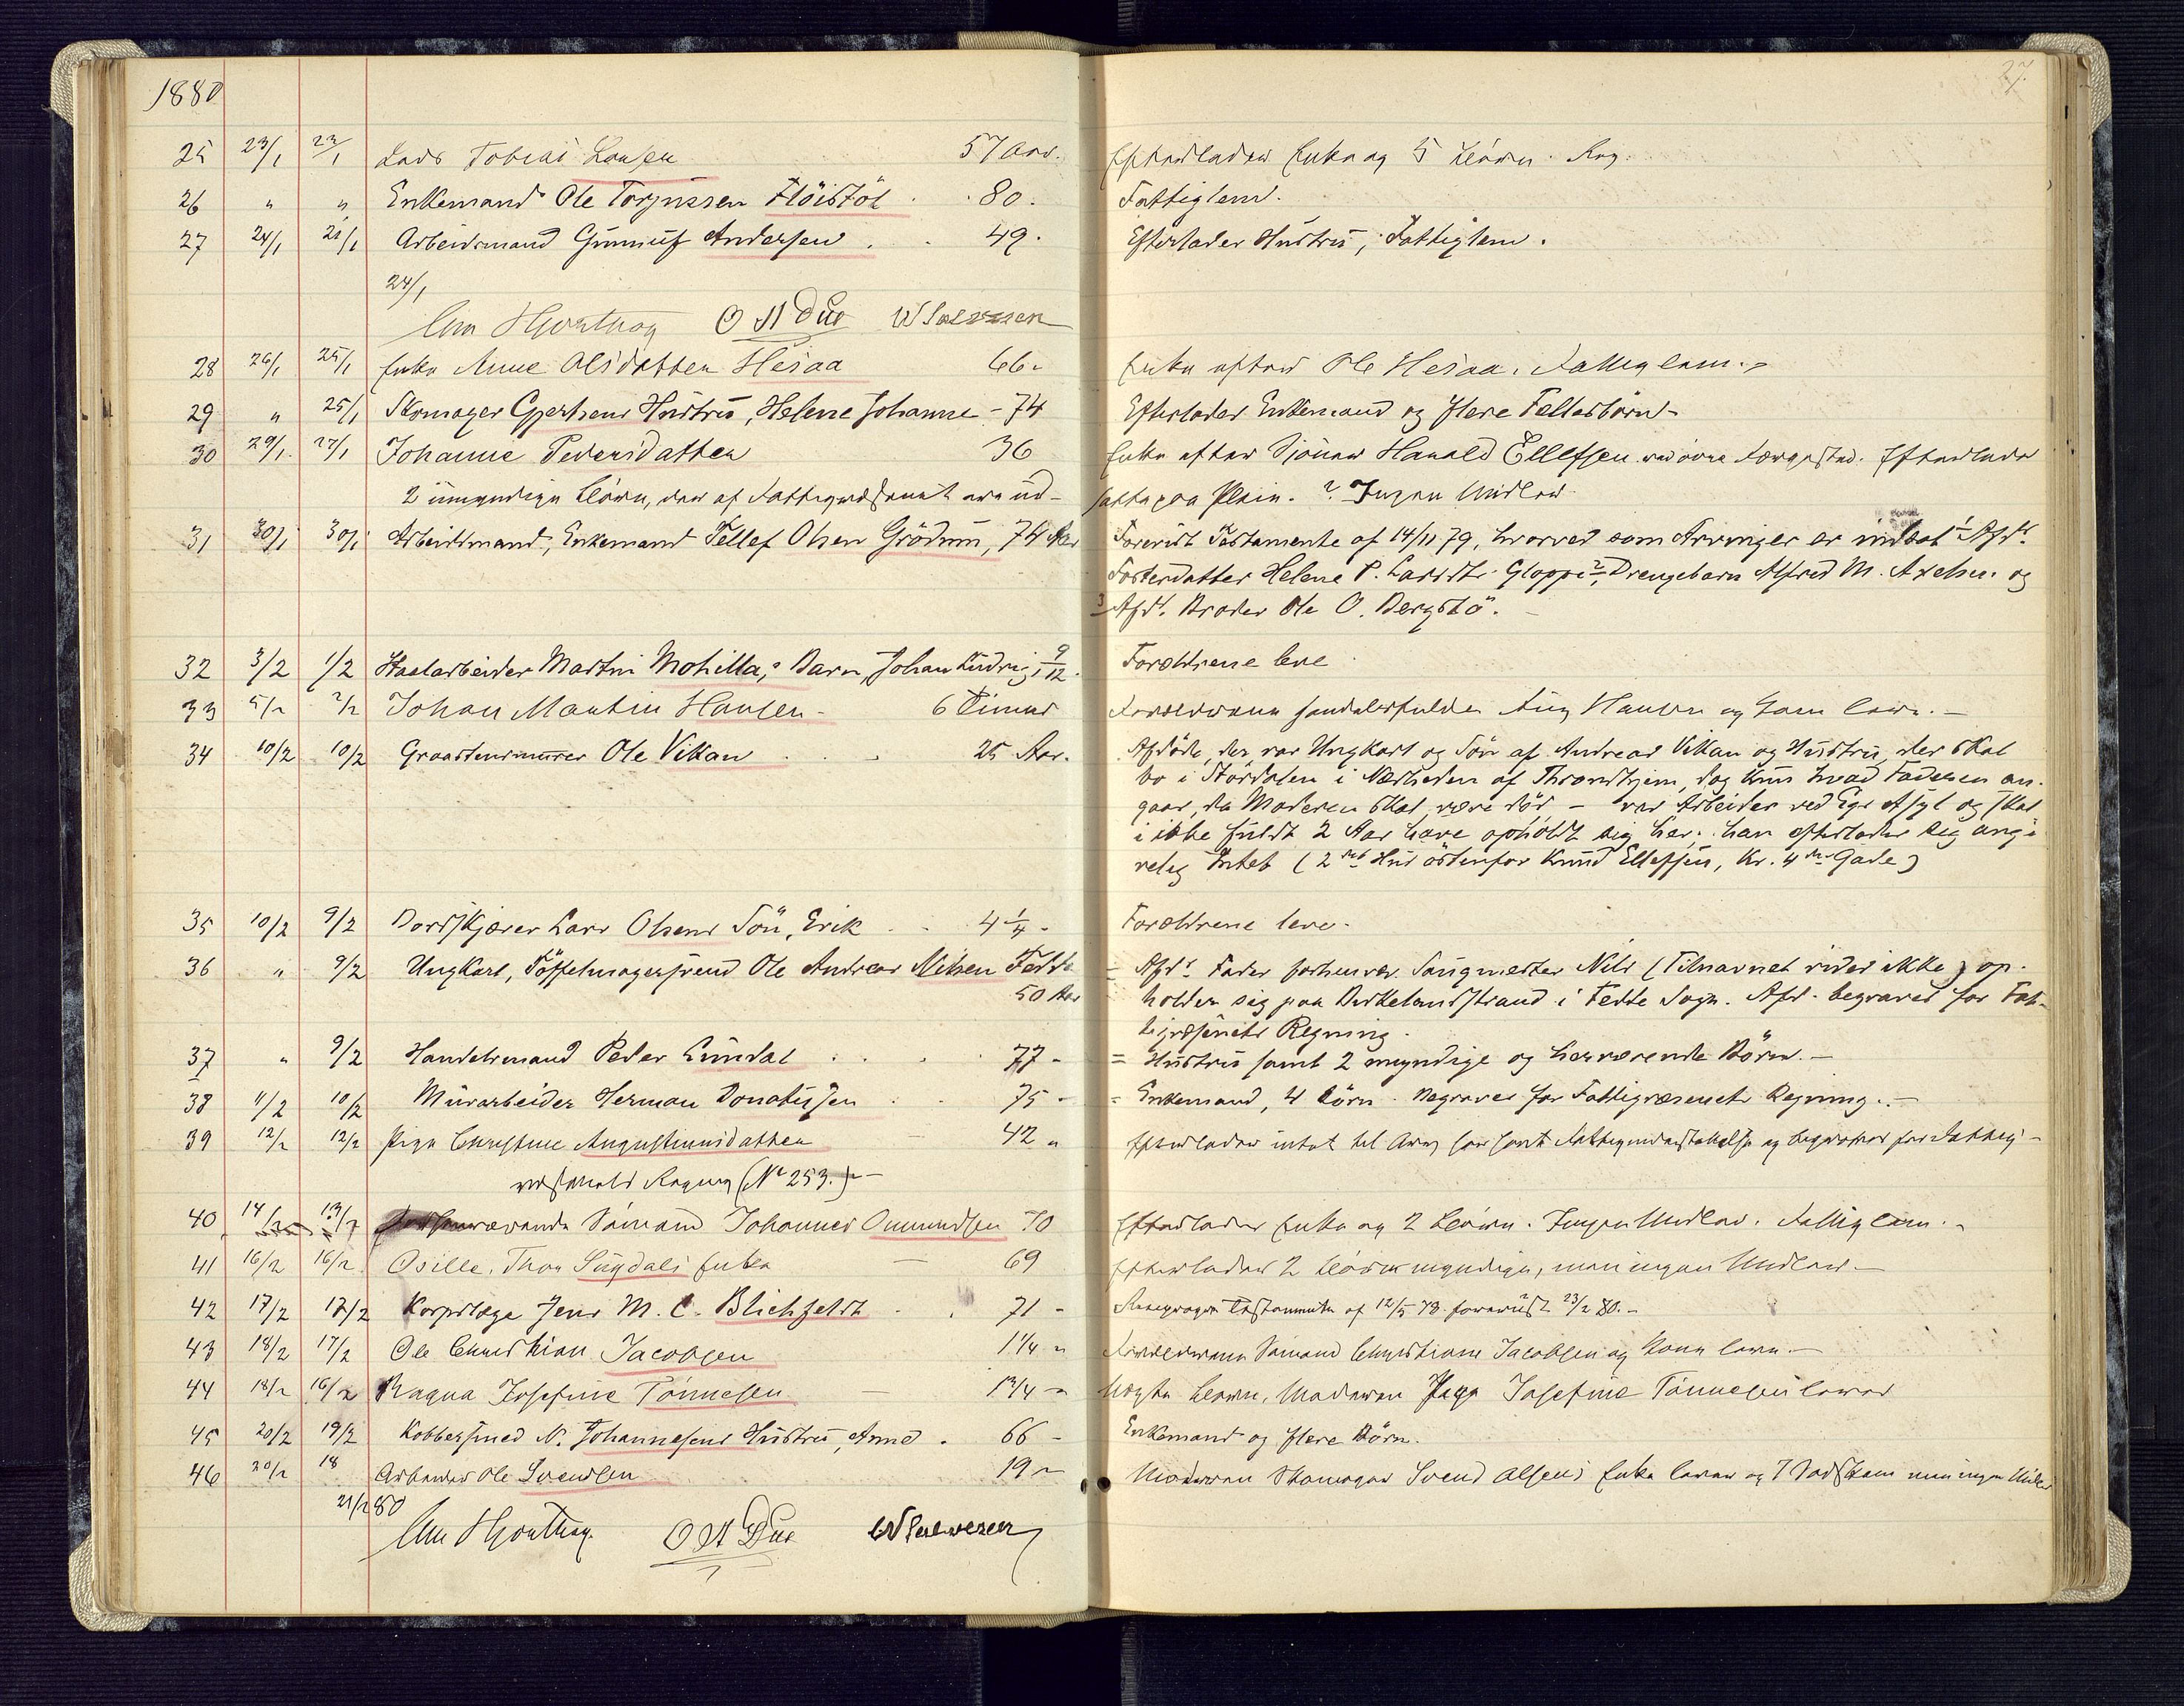 1880
27.
25 23/1 23/1 Lods Tobias Larsen 57 Aar. Efterlader Enke og 5 Børn.
26 " " Enkemand Ole Torjussen Fløistøl 80. Fattiglem.
27 24/1 21/1 Arbeidsmand Gunnuf Andersen 49. Efterlader Hustru, Fattiglem.
24/1
Chr Hjorthog O A Due
28 26/1 25/1 Enke Anne Olsdatter Hesaa 66 Enke efter Ole Hesaa. Fattiglem.
29 " 25/1 Skomager Gjertsens Hustru, Helene Johanne 74 Efterlader Enkemand og flere Fellesbørn
30 29/1 27/1 Johanne Pedersdatter 36 Enke efter Sjömand Harald Ellefsen Efterlader
2 umyndige Børn, der af Fattigvæsenet ere ud- satte paa Pleie. Ingen Midler
31 30/1 30/1 Arbeidsmand, Enkemand Tellef Olsen Grødum, 74 Aar Forevist Testamente af 14/11 79, hvorved som Arvinger er indsat 1 Afds.
Fosterdatter Helene P. Larsdtr. Gloppe 2, Drengebarn Alfred M. Axelsen og
3 Afds. Broder Ole O. Bergstø.
32 3/2 1/2 Martin Mohilla,s Barn, Johan Ludvig, 9/12. Forældrene leve
33 5/2 2/2 Johan Martin Hansen 6 Timer Forældrene Aug Hansen og Kone lever.
34 10/2 10/2 Graastensmurer Ole Vikan 25 Aar. Afdøde, der var Ungkarl og Søn af Andreas Vikan og Hustru, der skal
bo i Størdalen i Nærheden af Throndhjem, dog kun hvad Faderen an-
gaar, da Moderen skal være død, - var Arbeider ved Egs Asyl og skal
i ikke fuldt 2 Aar have opholdt sig her; han efterlader sig angi-
velig Intet (2det Hus østenfor Knud Ellefsen, Kr. 4de Gade)
35 10/2 9/2 Bordskjærer Lars Olsens Søn, Erik 4 1/4 Forældrene leve.
36 " 9/2 Ungkarl, Tøffelmagersvend Ole Andreas Nilsen Fedde = Afds. Fader forhenvær. Saugmester Nils (Tilnavnet vides ikke) op-
50 Aar holder sig paa Birkelandstrand i Fedde Sogn. Afd. begraves for Fat-
tigvæsenets Regning.
37 " 9/2 Handelsmand Peder Lundal 77 = Hustru samt 2 myndige og herværende Børn.
38 11/2 10/2 Murarbeider Herman Donatussen 75 = Enkemand, 4 Børn. Begraves for Fattigvæsenets Regning.
39 12/2 12/2 Pige Christine Augustinusdatter 42 Efterlader intet til Arv, har havt Fattigunderstøttelse og begraves for Fattig-
væsenets Regning (No 253.)
40 14/2 13/2 Sømand Johannes Ommundsen 70 Efterlader Enke og 2 Børn. Ingen Midler. Fattiglem.
41 16/2 16/2 Osille, Thor Lügdals Enke 69 Efterlader 2 Børn myndige, men ingen Midler.
42 17/2 17/2 Korpslæge Jens M. C. Blichfeldt 71 Testamente af 12/5 78. forevist 23/2 80.
43 18/2 17/2 Ole Christian Jacobsen 1 1/4 Forældrene Sømand Christian Jacobsen og Kone lever.
44 18/2 16/2 Ragna Josefine Tønnesen 1 3/4 Uægte Barn, Moderen Pige Josefine Tønnesen lever
45 20/2 19/2 Kobbersmed N. Johannesens Hustru, Anne 66 Enkemand og flere Børn.
46 20/2 18 Arbeider Ole Svendsen 19 Moderen Skomager Svend Olsens Enke lever og 7 Sødskene men ingen Midler
21/2 80
Chr Hjorthog. O A Due